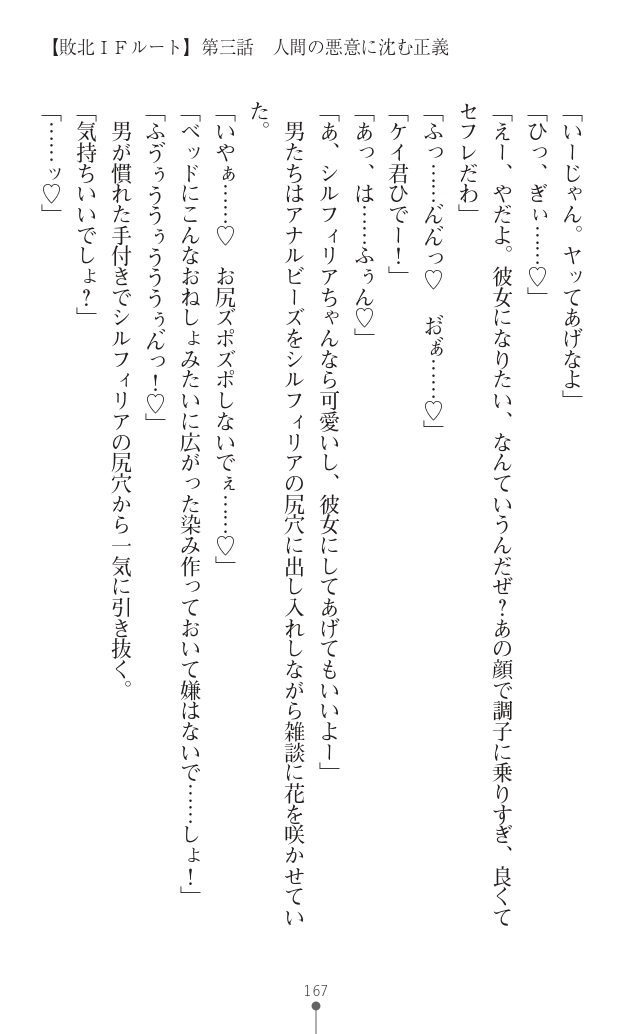 【敗北ＩＦルート】第三話　人間の悪意に沈む正義
「いーじゃん。ヤッてあげなよ」
「ひっ、ぎぃ……♡」
「えー、やだよ。彼女になりたい、なんていうんだぜ？あの顔で調子に乗りすぎ、良くて
セフレだわ」
「ふっ……ん゛ん゛っ♡　お゛ぁ゛……♡」
「ケイ君ひでー！」
「あっ、は……ふぅん♡」
「あ、シルフィリアちゃんなら可愛いし、彼女にしてあげてもいいよー」
男たちはアナルビーズをシルフィリアの尻穴に出し入れしながら雑談に花を咲かせてい
た。
「いやぁ……♡　お尻ズポズポしないでぇ……♡」
「ベッドにこんなおねしょみたいに広がった染み作っておいて嫌はないで……しょ！」
「ふゔぅううぅうううぅん゛っ！♡」
男が慣れた手付きでシルフィリアの尻穴から一気に引き抜く。
「気持ちいいでしょ？」
「……ッ♡」
167